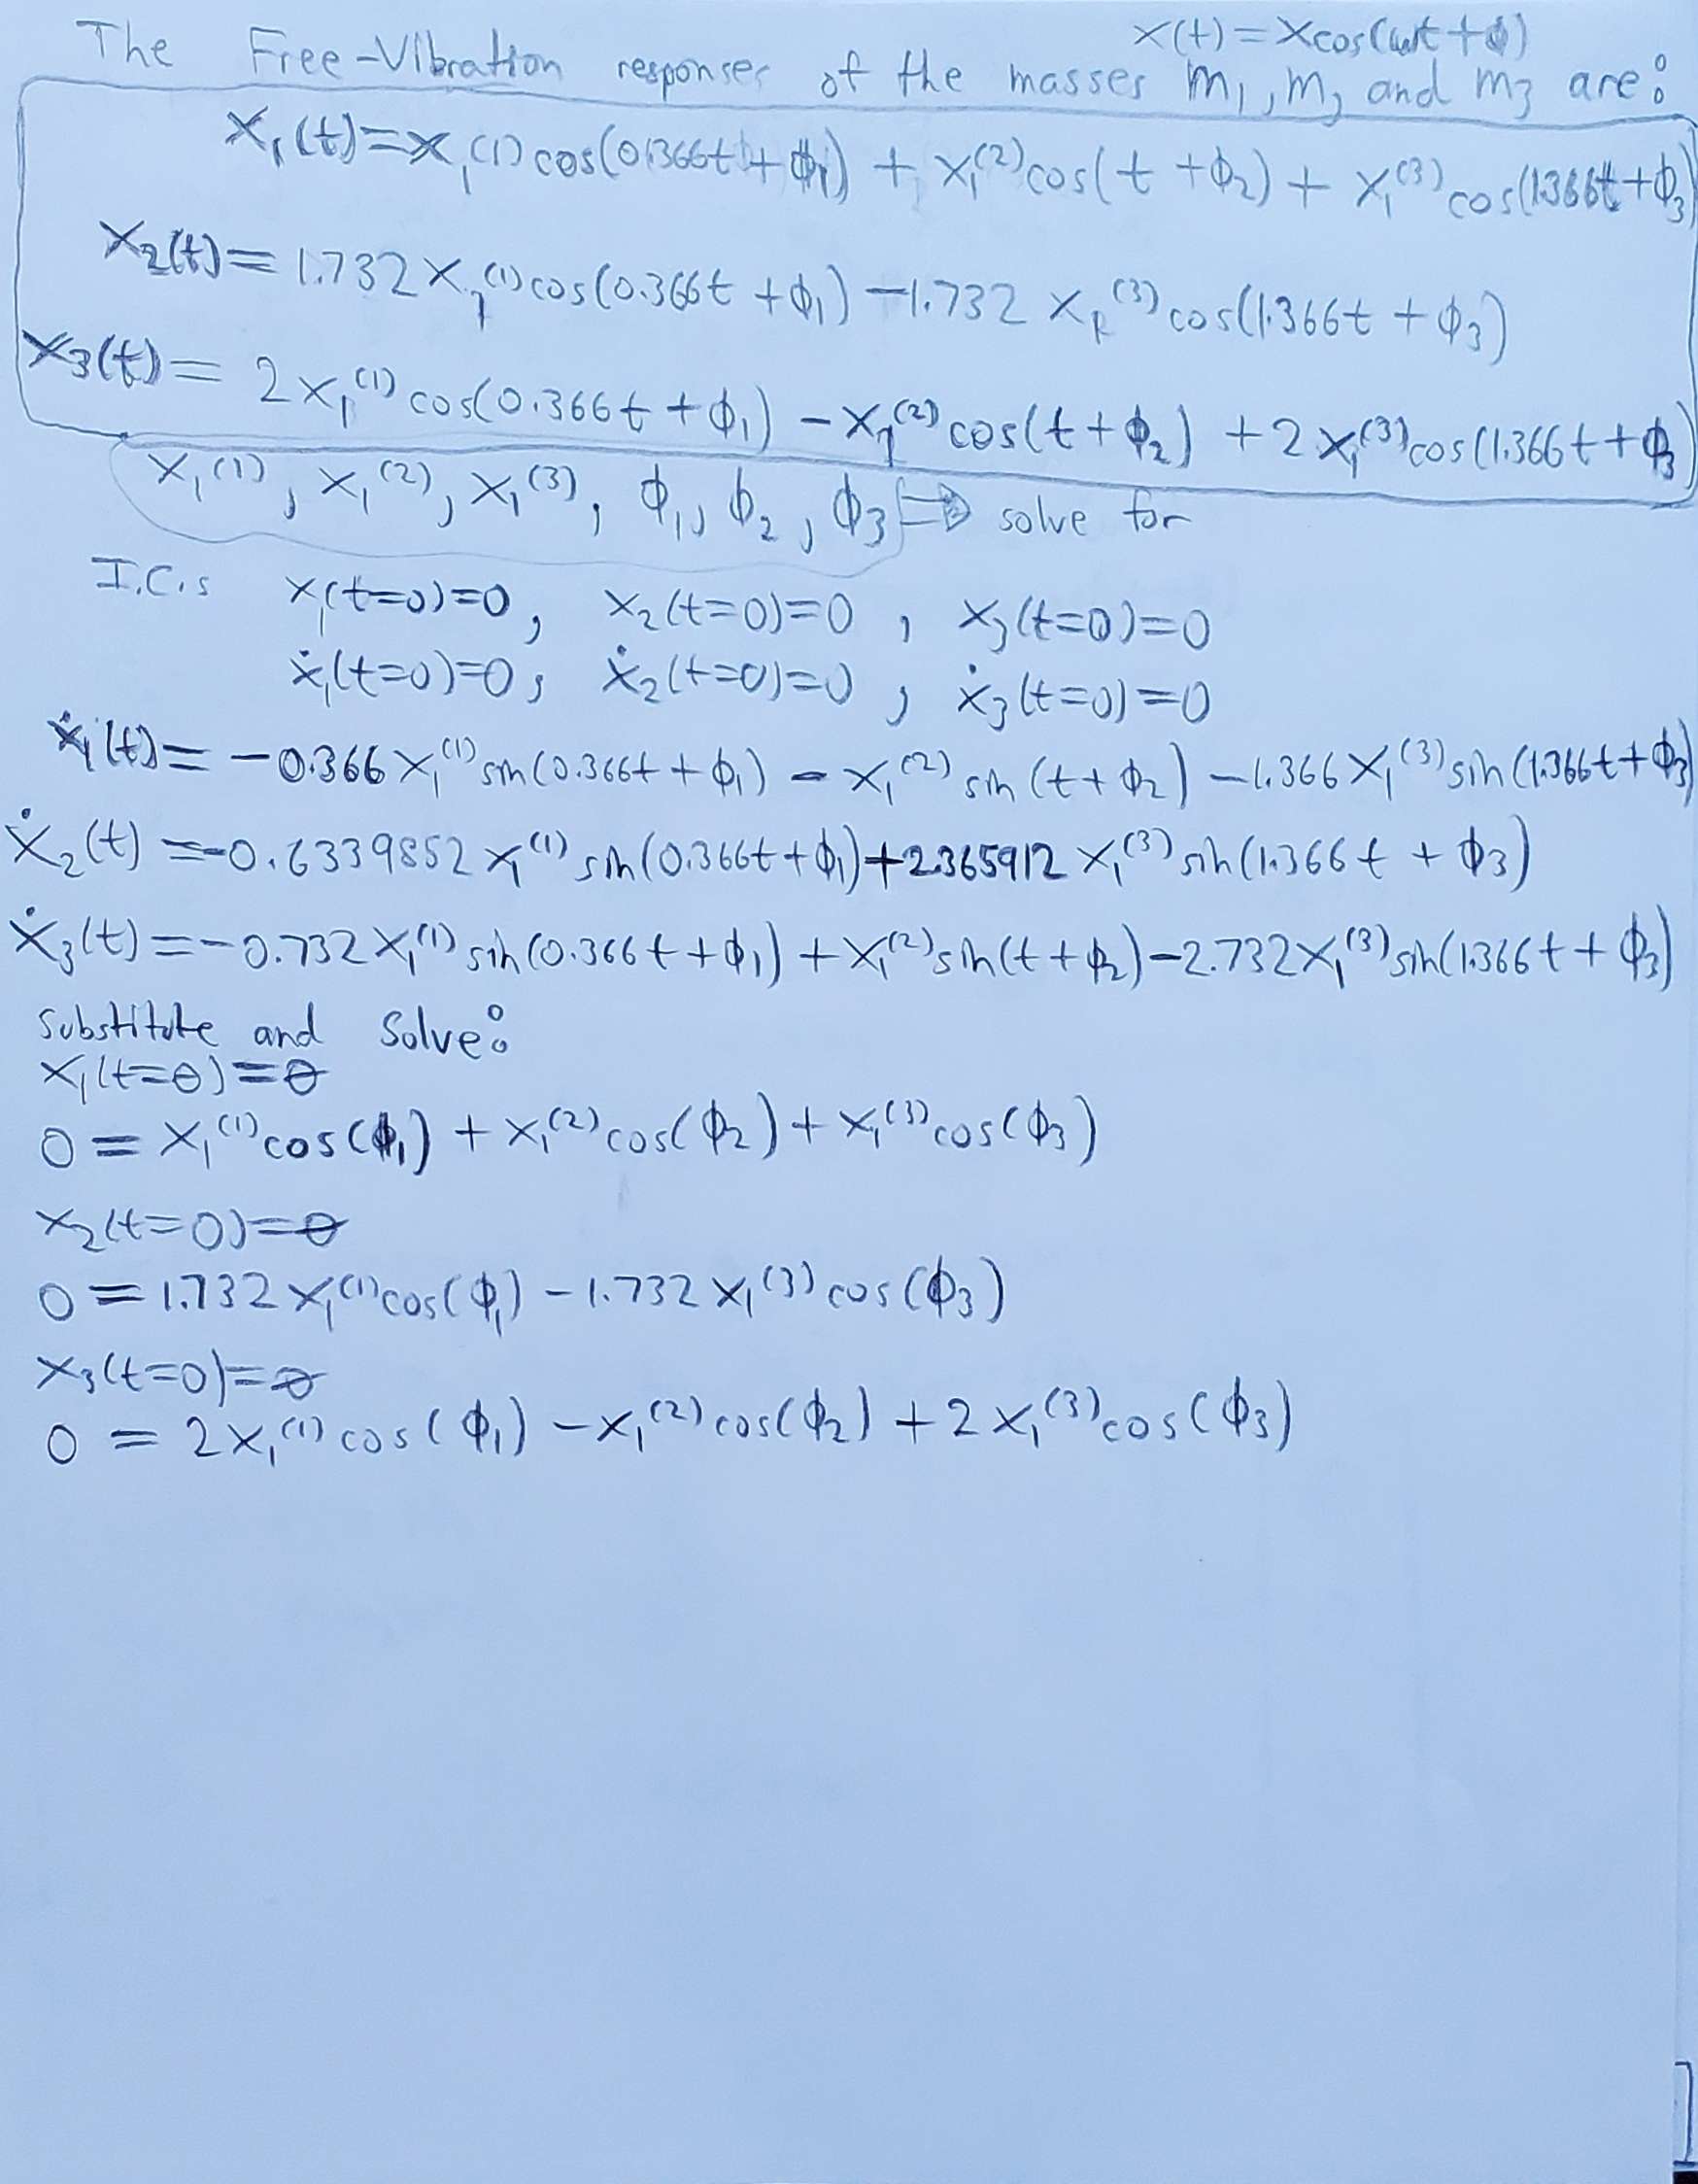 x(t)=Xcos(ωt+ϕ)
The Free-Vibration responses of the masses m₁, m₂ and m₃ are:
x₁(t)=x₁⁽¹⁾cos(0.366t+ϕ₁) + x₁⁽²⁾cos(t+ϕ₂) + x₁⁽³⁾cos(1.366t+ϕ₃)
x₂(t)= 1.732x₁⁽¹⁾cos(0.366t+ϕ₁) −1.732 x₁⁽³⁾cos(1.366t+ϕ₃)
x₃(t)= 2x₁⁽¹⁾cos(0.366t+ϕ₁) −x₁⁽²⁾cos(t+ϕ₂) +2x₁⁽³⁾cos(1.366t+ϕ₃)
x₁⁽¹⁾, x₁⁽²⁾, x₁⁽³⁾, ϕ₁, ϕ₂, ϕ₃ ⇒ solve for
I.C.s x₁(t=0)=0, x₂(t=0)=0, x₃(t=0)=0
ẋ₁(t=0)=0, ẋ₂(t=0)=0, ẋ₃(t=0)=0
ẋ₁(t)= −0.366x₁⁽¹⁾sin(0.366t+ϕ₁) − x₁⁽²⁾sin(t+ϕ₂) −1.366x₁⁽³⁾sin(1.366t+ϕ₃)
ẋ₂(t)=−0.6339852x₁⁽¹⁾sin(0.366t+ϕ₁)+2.365912x₁⁽³⁾sin(1.366t+ϕ₃)
ẋ₃(t)=−0.732x₁⁽¹⁾sin(0.366t+ϕ₁)+x₁⁽²⁾sin(t+ϕ₂)−2.732x₁⁽³⁾sin(1.366t+ϕ₃)
substitute and solve:
x₁(t=0)=0
0 = x₁⁽¹⁾cos(ϕ₁) + x₁⁽²⁾cos(ϕ₂) + x₁⁽³⁾cos(ϕ₃)
x₂(t=0)=0
0 = 1.732x₁⁽¹⁾cos(ϕ₁) −1.732x₁⁽³⁾cos(ϕ₃)
x₃(t=0)=0
0 = 2x₁⁽¹⁾cos(ϕ₁) −x₁⁽²⁾cos(ϕ₂) +2x₁⁽³⁾cos(ϕ₃)